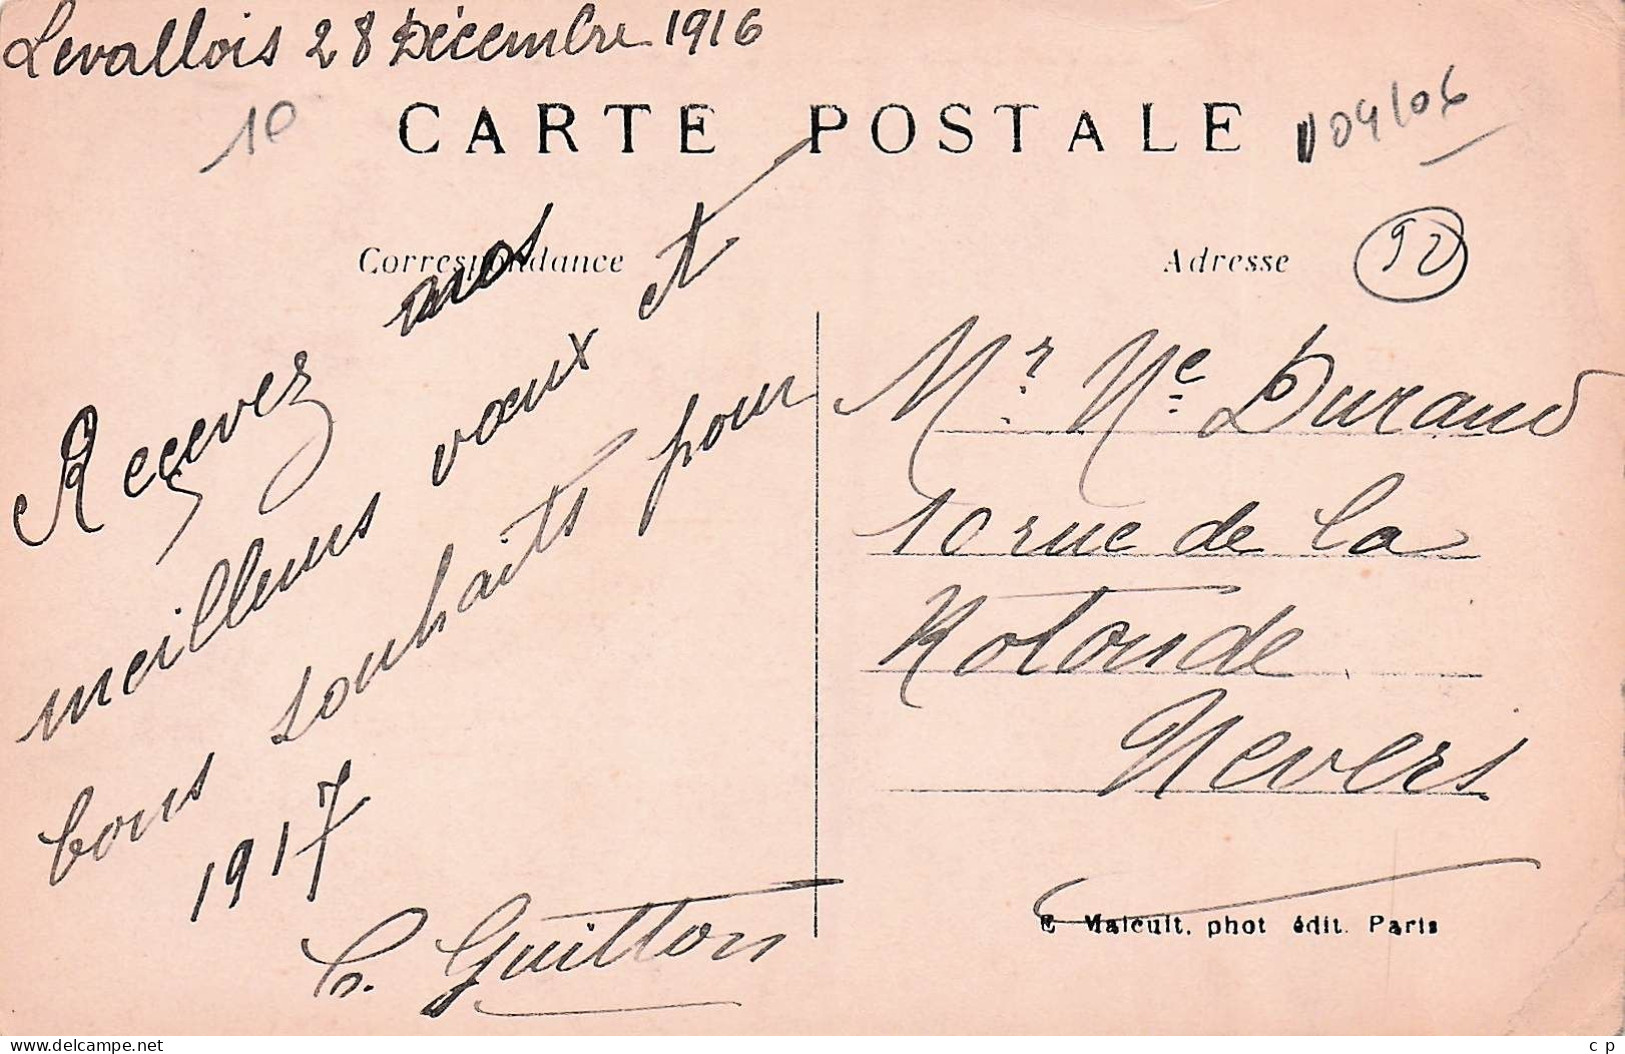 Levallois 28 Décembre 1916
10
CARTE POSTALE
04/06
Correspondance
Adresse
92
Recevez nos
meilleurs vœux et
bons souhaits pour
1917
Guitton
Mr Mᵉ Durand
10 rue de la
Rotonde
Nevers
E Malcuit, phot édit. Paris
delcampe.net
c p